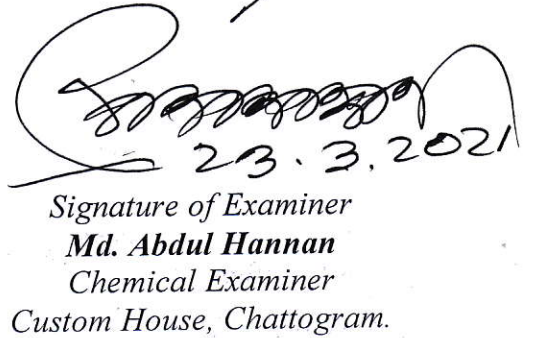 23.3.2021
Signature of Examiner
Md. Abdul Hannan
Chemical Examiner
Custom House, Chattogram.